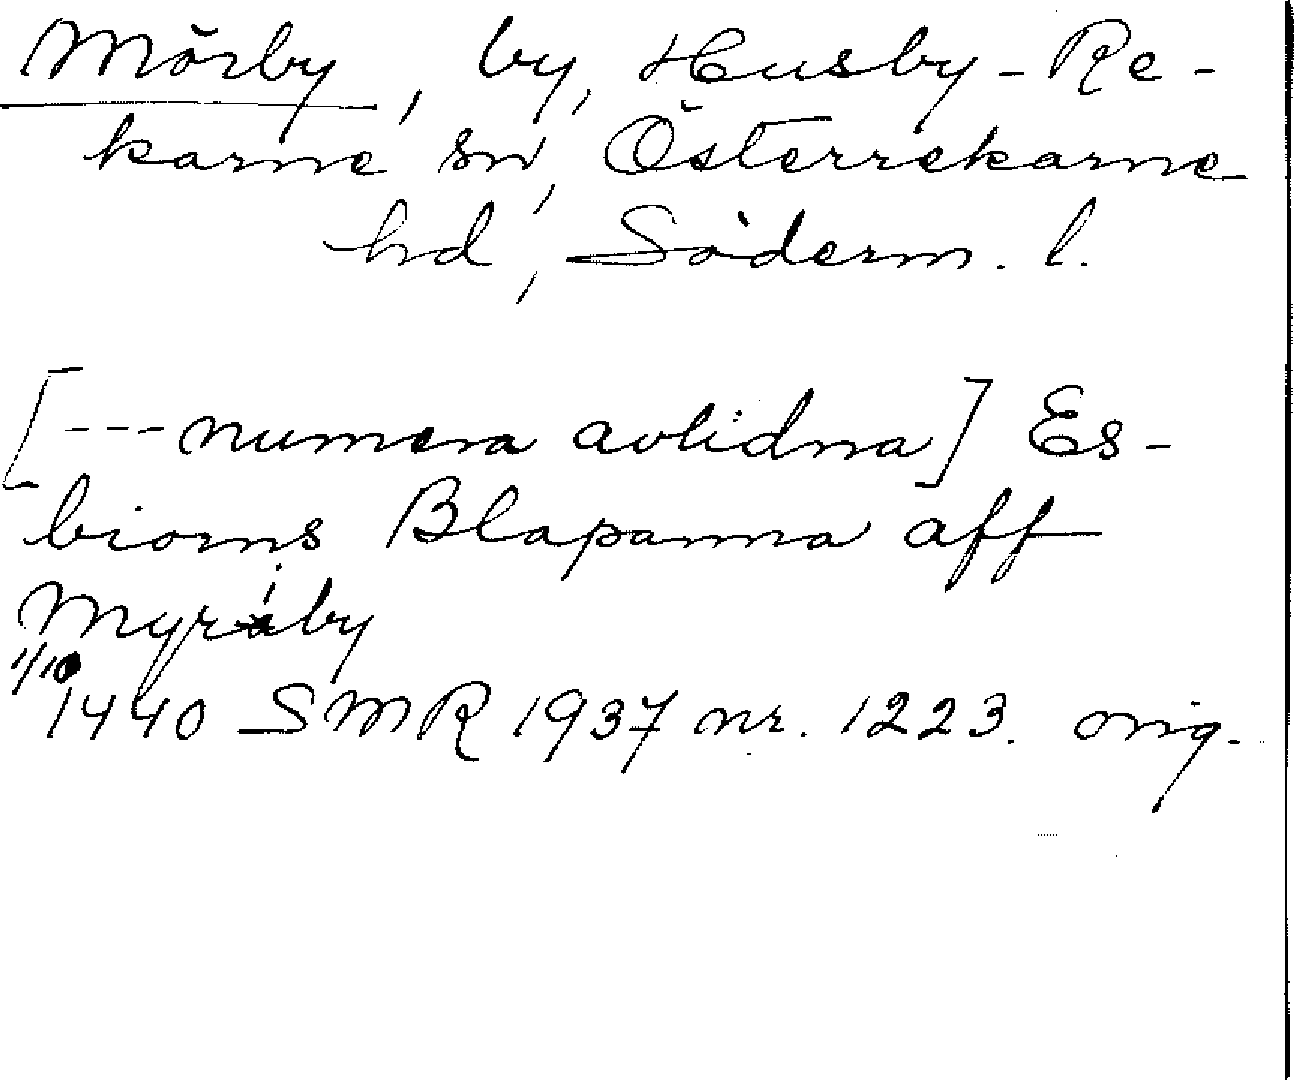 Mörby, by, Husby-Re-
karne sn, Österrekarne
hd, Söderm. l.
[---numera avlidna] Es-
biorns Blapanna aff
Myriby
1/10
1440 SMR 1937 nr. 1223. orig.